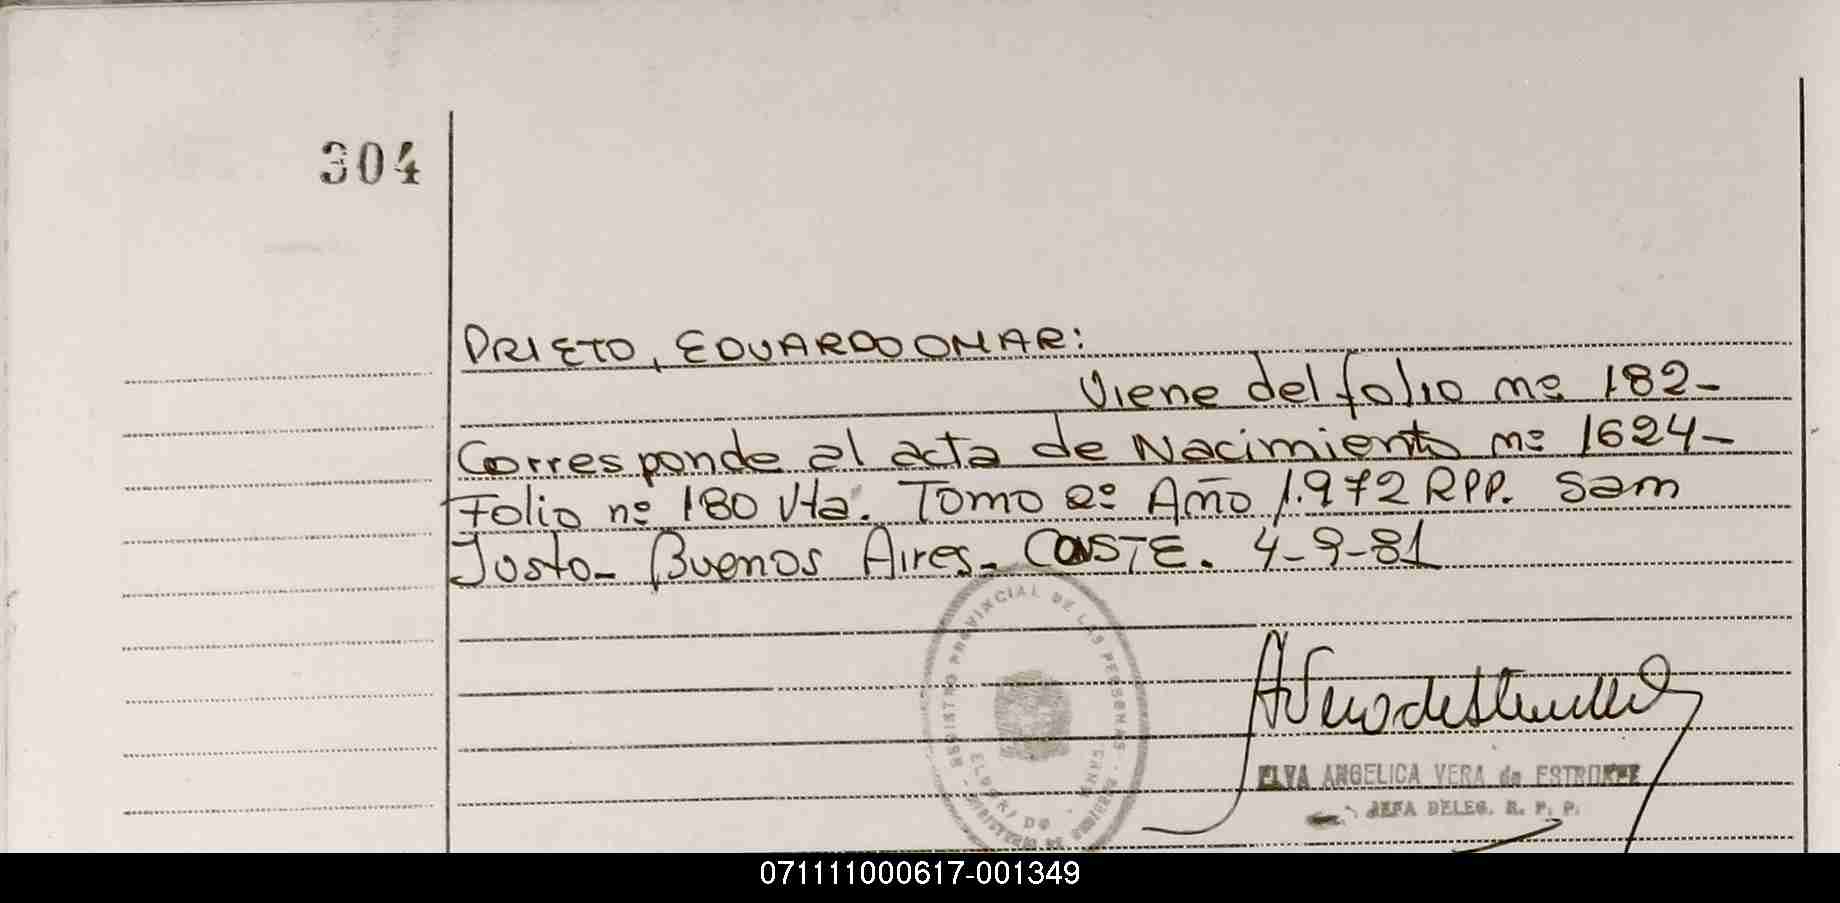 304
PRIETO, EDUARDO OMAR:
Viene del folio nº 182-
Corresponde al acta de Nacimiento nº 1624-
Folio nº 180 Vta. Tomo 2º Año 1.972 RPP. San
Justo- Buenos Aires- CONSTE. 4-9-81
REGISTRO PROVINCIAL DE LAS PERSONAS
ELVA ANGELICA VERA de
JEFA DELEG. R. P. P.
071111000617-001349